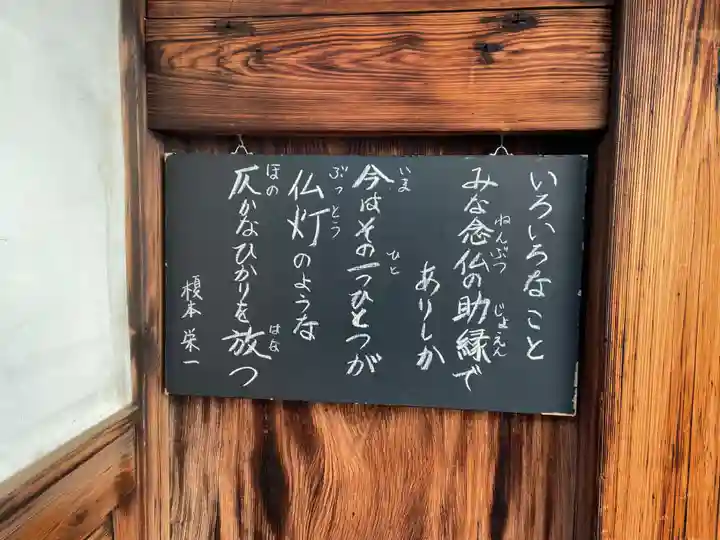 いろいろなこと
みな念仏の助縁で
ねんぶつ
じょえん
ありしか
今はその一つひとつが
いま
ひと
仏灯のような
ぶっとう
仄かなひかりを放つ
ほの
はな
榎本栄一